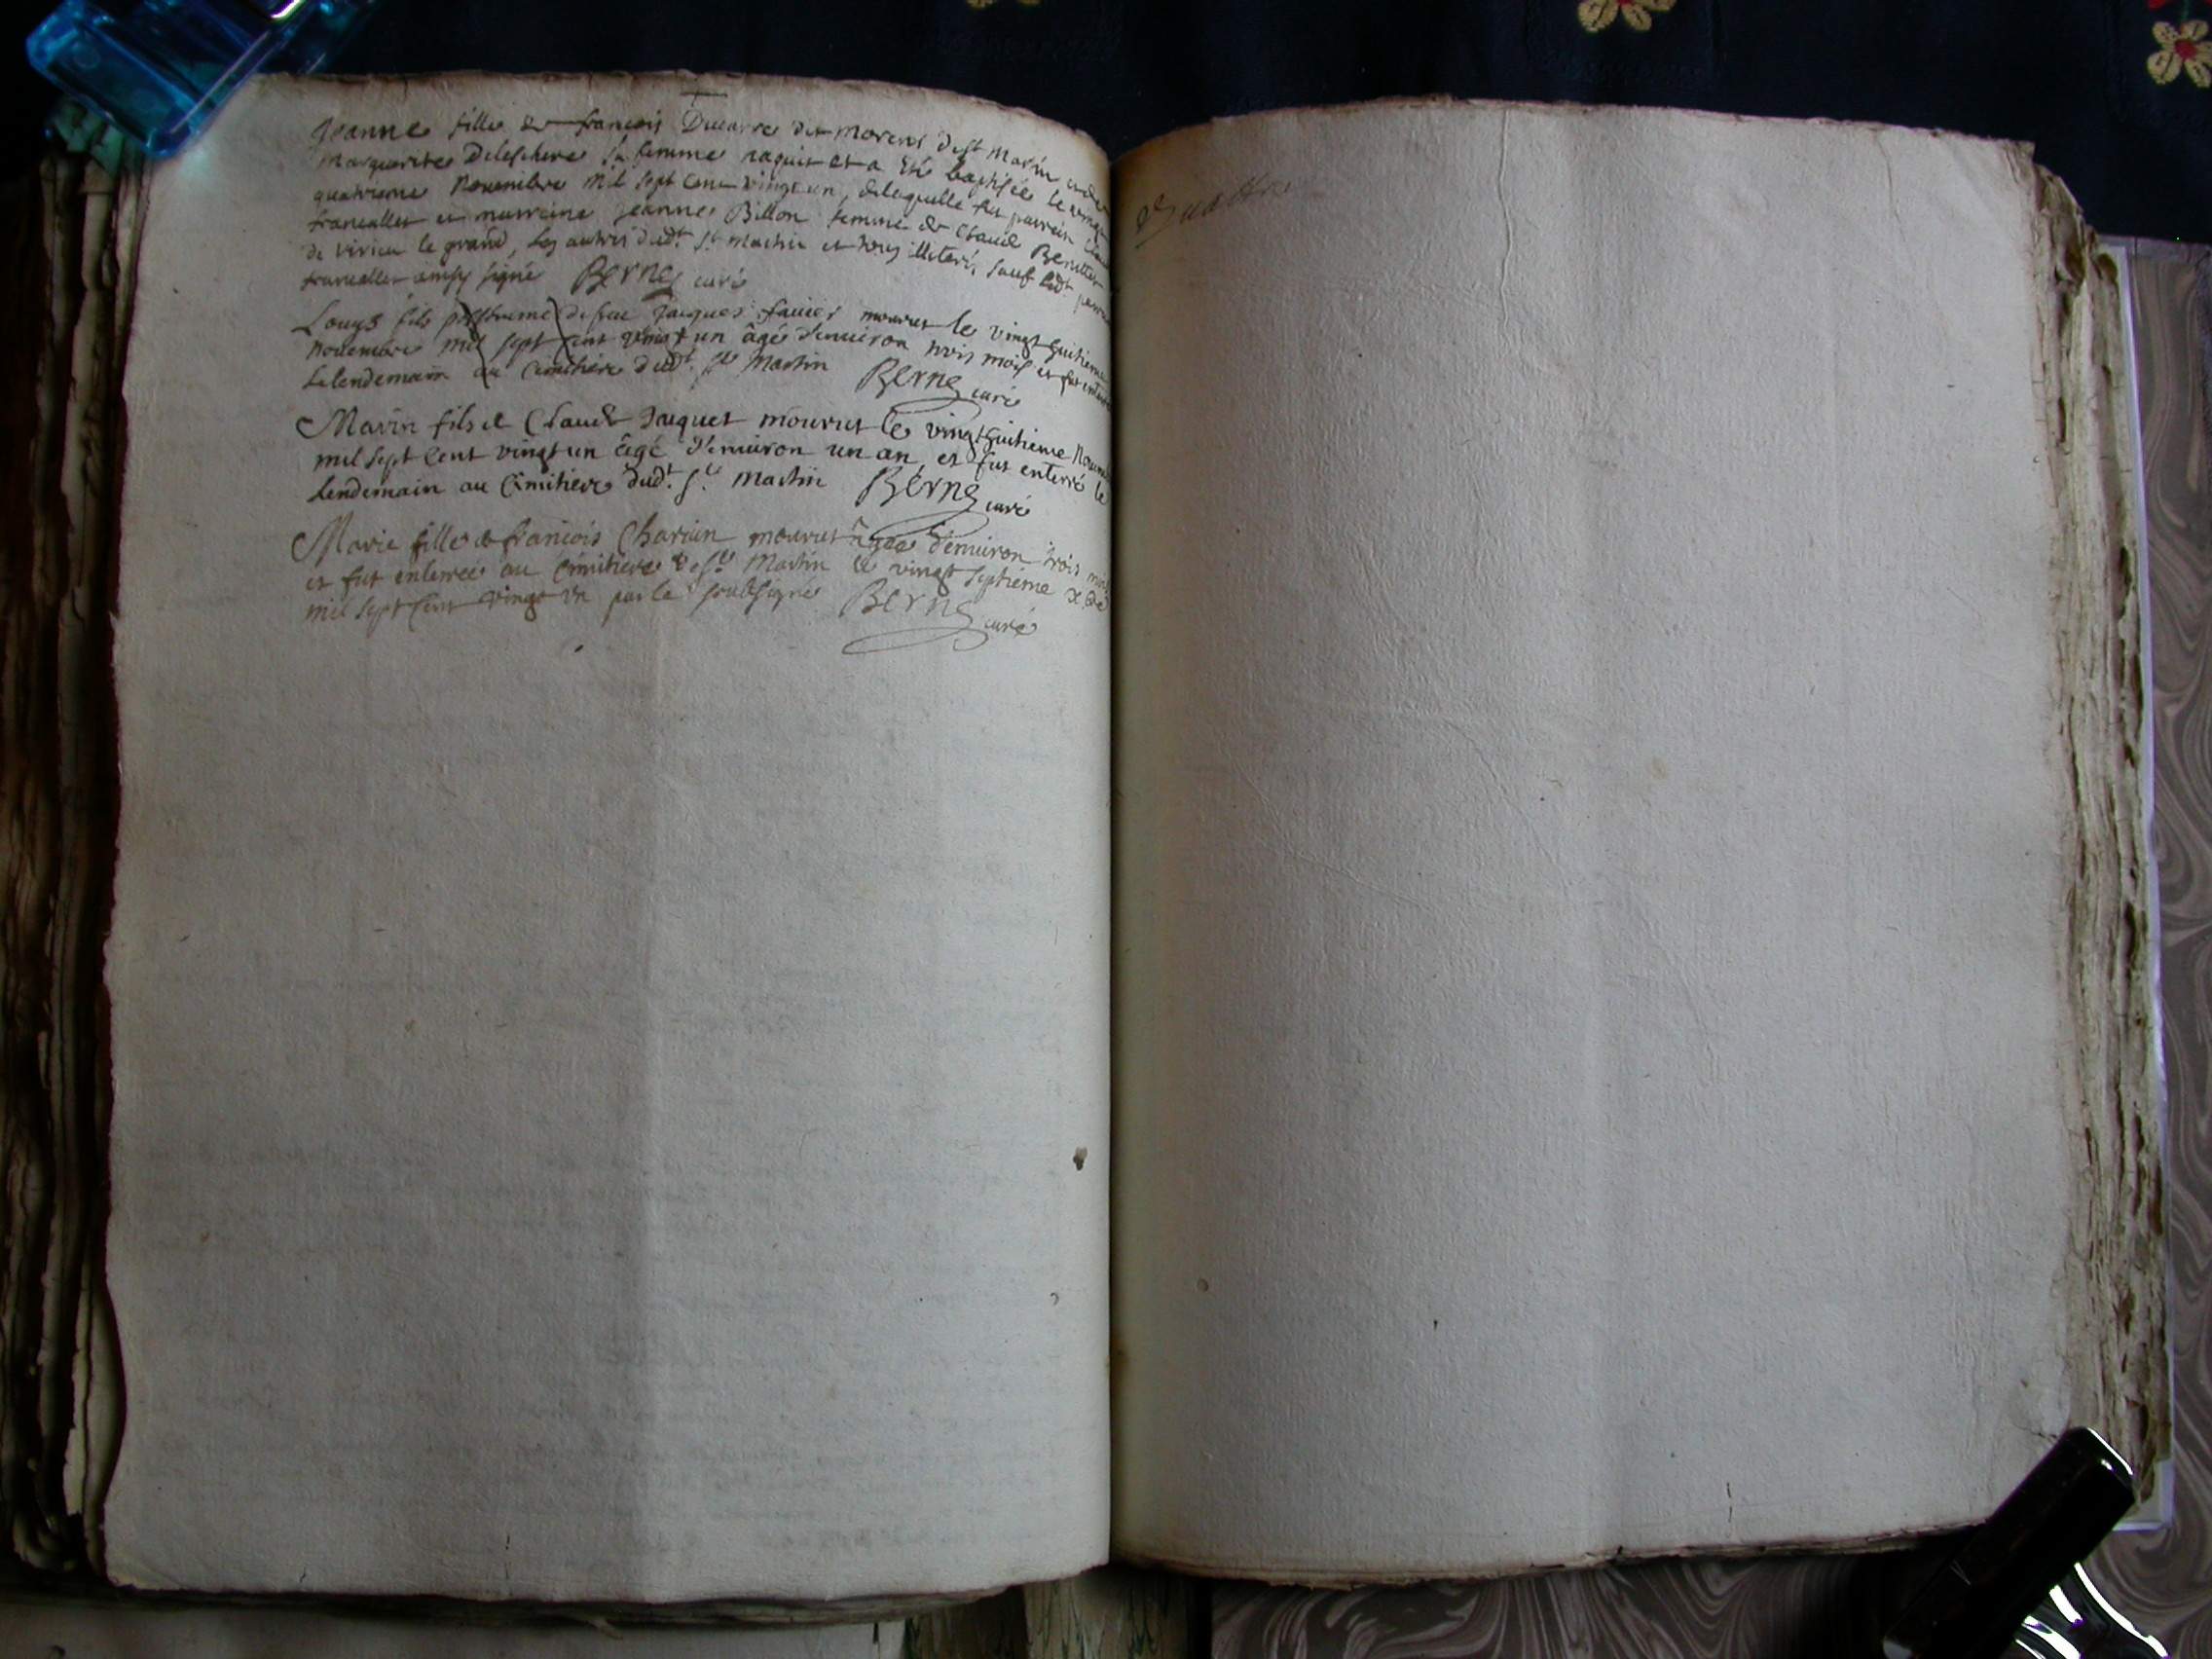 Jeanne fille de françois Ducarre dit morens de st Martin et de
marguerite Deleschere sa femme naquit et a esté baptisée le vingt
quatrieme Nouembre mil sept cent vingt un, de laquelle fut parrain
francallet et marreine jeanne Billon femme de Claude
de virieu le grand, les autres dudt. st. Martin et tous illiterés sauf ledt.
francallet ainsy signé Berne curé
Louys fils posthume de feu jacques fauier mourut le vingt huitieme
Nouembre mil sept cent vingt un âgé d'enuiron trois mois et fut enterré
le lendemain au Cimitiere dudt. st. Martin Berne curé
Marin fils de Claude Jaquet mourut le vingt huitieme
mil sept cent vingt un âgé d'enuiron un an et fut enterré le
lendemain au Cimitiere dudt. st. Martin Berne curé
Marie fille de françois mourut âgée d'enuiron trois
et fut enterrée au Cimitiere de st. Martin le vingt septiéme
mil sept cent vingt un par le soubsigné Berne curé